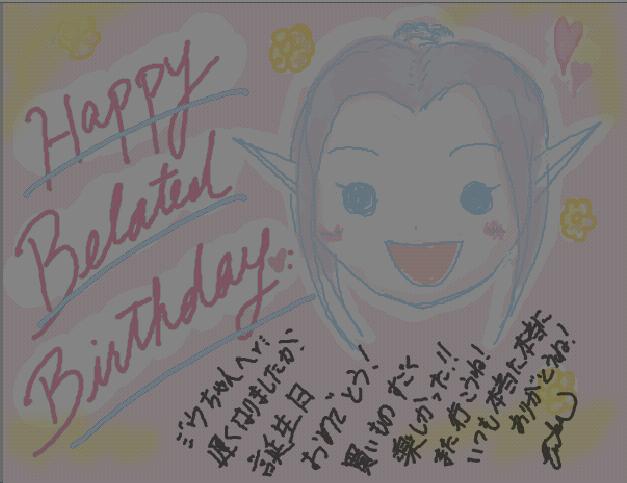 Happy
Belated
Birthday
ちゃんへ
遅くなりましたが、
誕生日
おめでとう！
買いもの
楽しかった!!
また行こうね！
いつも本当に本当に
ありがとうね！